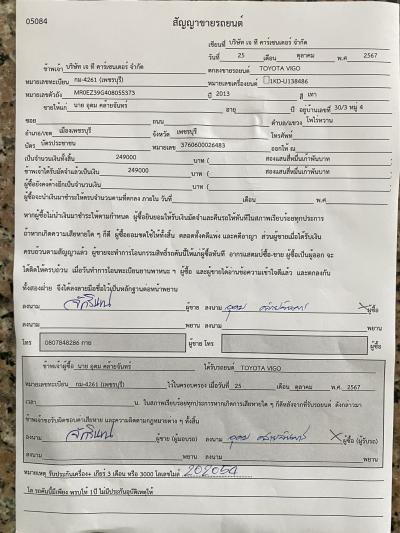 05084
สัญญาขายรถยนต์
เขียนที่ บริษัท เจ ที คาร์เซนเตอร์ จำกัด
วันที่ 25 เดือน ตุลาคม พ.ศ 2567
ข้าพเจ้า บริษัท เจ ที คาร์เซนเตอร์ จำกัด ตกลงขายรถยนต์ TOYOTA VIGO
หมายเลขทะเบียน กม-4261 (เพชรบุรี) หมายเลขเครื่องยนต์ 1KD-U138486
หมายเลขตัวถัง MR0EZ39G408055373 ปี 2013 สี เทา
ขายให้แก่ นาย อุดม คล้ายจันทร์ อายุ ปี อยู่บ้านเลขที่ 30/3 หมู่ 4
ซอย ถนน ตำบล/แขวง โพไร่หวาน
อำเภอ/เขต เมืองเพชรบุรี จังหวัด เพชรบุรี โทรศัพท์
บัตร บัตรประชาชน หมายเลข 3760600026483 ออกให้ ณ
เป็นจำนวนเงินทั้งสิ้น 249000 บาท ( สองแสนสี่หมื่นเก้าพันบาท
ข้าพเจ้าได้รับมัดจำแล้วเป็นเงิน 249000 บาท ( สองแสนสี่หมื่นเก้าพันบาท
ผู้ซื้อยังคงค้างอีกเป็นจำนวนเงิน บาท (
ผู้ซื้อจะนำเงินมาชำระให้ครบจำนวนตามที่ตกลง ภายใน วันที่ เดือน พ.ศ.
หากผู้ซื้อไม่นำเงินมาชำระให้ตามกำหนด ผู้ซื้อยินยอมให้ริบเงินมัดจำและคืนรถให้ทันทีในสภาพเรียบร้อยทุกประการ
ถ้าหากเกิดความเสียหายใด ๆ ก็ดี ผู้ซื้อยอมชดใช้ให้ทั้งสิ้น ตลอดทั้งคดีแพ่ง และคดีอาญา ส่วนผู้ขายเมื่อได้รับเงิน
ครบถ้วนตามสัญญาแล้ว ผู้ขายจะทำการโอนกรรมสิทธิ์รถคันนี้ให้แก่ผู้ซื้อทันที อากรแสตมป์ซื้อ-ขาย ผู้ซื้อเป็นผู้ออก จะ
ได้คิดให้ครบถ้วน เมื่อวันทำการโอนทะเบียนยานพาหนะ ๆ ผู้ซื้อ และผู้ขายได้อ่านข้อความเข้าใจดีแล้ว และตกลงกัน
ทั้งสองฝ่าย จึงได้ลงลายมือชื่อไว้เป็นหลักฐานต่อหน้าพยาน
ลงนาม ผู้ขาย ลงนาม อุดม คล้ายจันทร์ ผู้ซื้อ
ลงนาม พยาน ลงนาม พยาน
โทร 0807848286 กาย ผู้ขาย โทร ผู้ซื้อ
ข้าพเจ้าผู้ซื้อ นาย อุดม คล้ายจันทร์ ได้รับรถยนต์ TOYOTA VIGO
หมายเลขทะเบียน กม-4261 (เพชรบุรี) ไว้ในครอบครอง เมื่อวันที่ 25 เดือน ตุลาคม พ.ศ. 2567
เวลา น. ในสภาพเรียบร้อยทุกประการหากเกิดการเสียหายใด ๆ ก็ดีหลังจากที่รับรถยนต์ ดังกล่าวมา
ข้าพเจ้าขอรับผิดชอบค่าเสียหาย และความผิดตามกฎหมายต่าง ๆ ทั้งสิ้น
ลงนาม ผู้ขาย (ผู้มอบรถ) ลงนาม อุดม คล้ายจันทร์ ผู้ซื้อ (ผู้รับรถ)
ลงนาม พยาน ลงนาม พยาน
หมายเหตุ รับประกันเครื่อง+ เกียร์ 3 เดือน หรือ 3000 โลเลขไมล์ 202054
รถคันนี้มีเพียง พรบ ให้ 1ปี ไม่มีประกันอุบัติเหตุให้